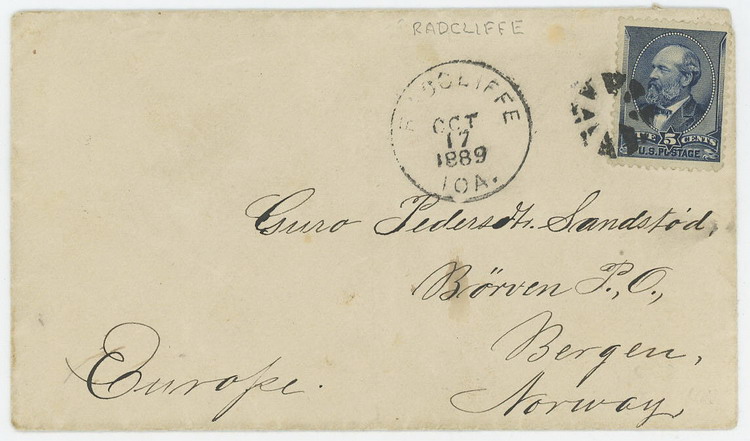 RADCLIFFE
RADCLIFFE
OCT
17
1889
IOA.
FIVE 5 CENTS
U.S. POSTAGE
Guro Pedersdtr. Sandstöd,
Börven P.O.,
Bergen,
Norway,
Europe.